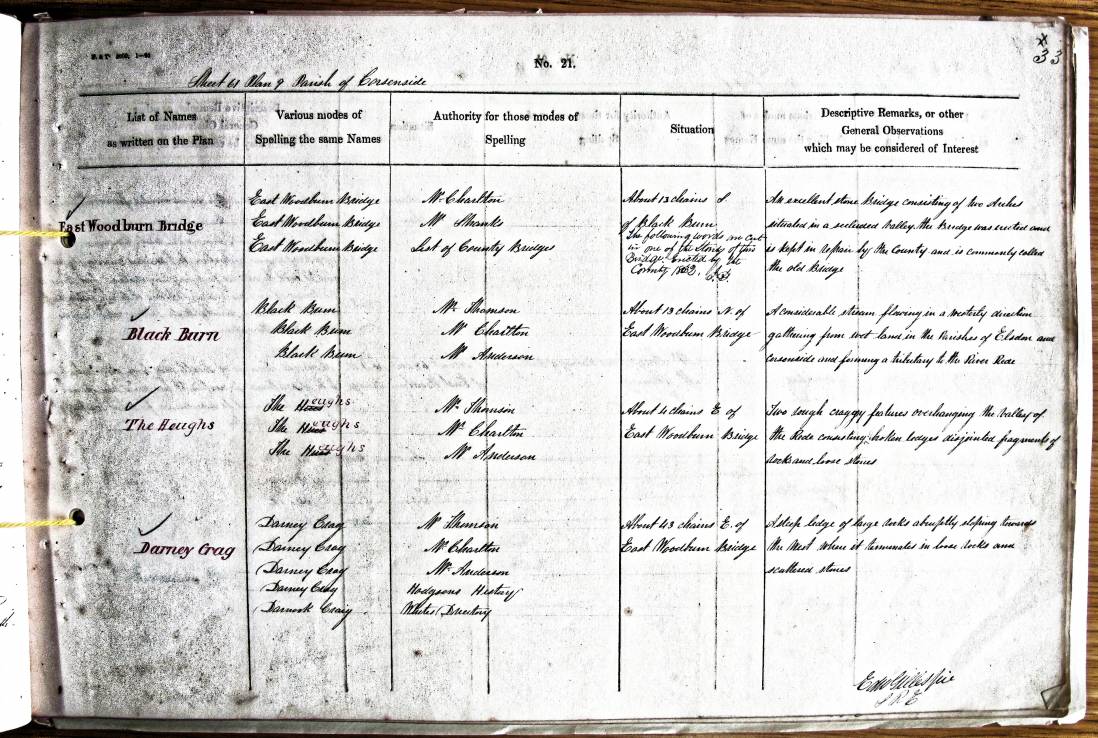 No. 21.
33
Sheet 61 Plan 9 Parish of Corsenside
List of Names
as written on the Plan
Various modes of
Spelling the same Names
Authority for those modes of
Spelling
Situation
Descriptive Remarks, or other
General Observations
which may be considered of Interest
East Woodburn Bridge
East Woodburn Bridge
East Woodburn Bridge
East Woodburn Bridge
Mr. Charlton
Mr. Shanks
List of County Bridges
About 13 chains S
of Black Burn
The following words are Cut
in one of the Stones of this
Bridge. Erected by the
County 1832.
An excellent stone Bridge consisting of two Arches
situated in a secluded Valley. the Bridge was erected and
is kept in repair by the County and is commonly called
the old Bridge
Black Burn
Black Burn
Black Burn
Black Burn
Mr. Thomson
Mr Charlton
Mr Anderson
About 13 chains N. of
East Woodburn Bridge
A considerable stream flowing in a westerly direction
gathering from wet land in the Parishes of Elsdon and
Corsenside and forming a tributary to the River Rede
The Heughs
The Heughs
The Heughs
The Heughs
Mr. Thomson
Mr. Charlton
Mr Anderson
About 4 chains E of
East Woodburn Bridge
Two rough craggy features overhanging the Valley of
the Rede consisting broken ledges disjointed fragments of
rock and loose stones
Darney Crag
Darney Crag
Darney Crag
Darney Crag
Darney Crag
Darnock Craig
Mr Thomson
Mr. Charlton
Mr. Anderson
Hodgsons History
Whites Directory
About 43 chains E. of
East Woodburn Bridge
A steep ledge of large rocks abruptly sloping towards
the West where it terminates in loose rocks and
scattered stones
Edw Gillespie
S R E